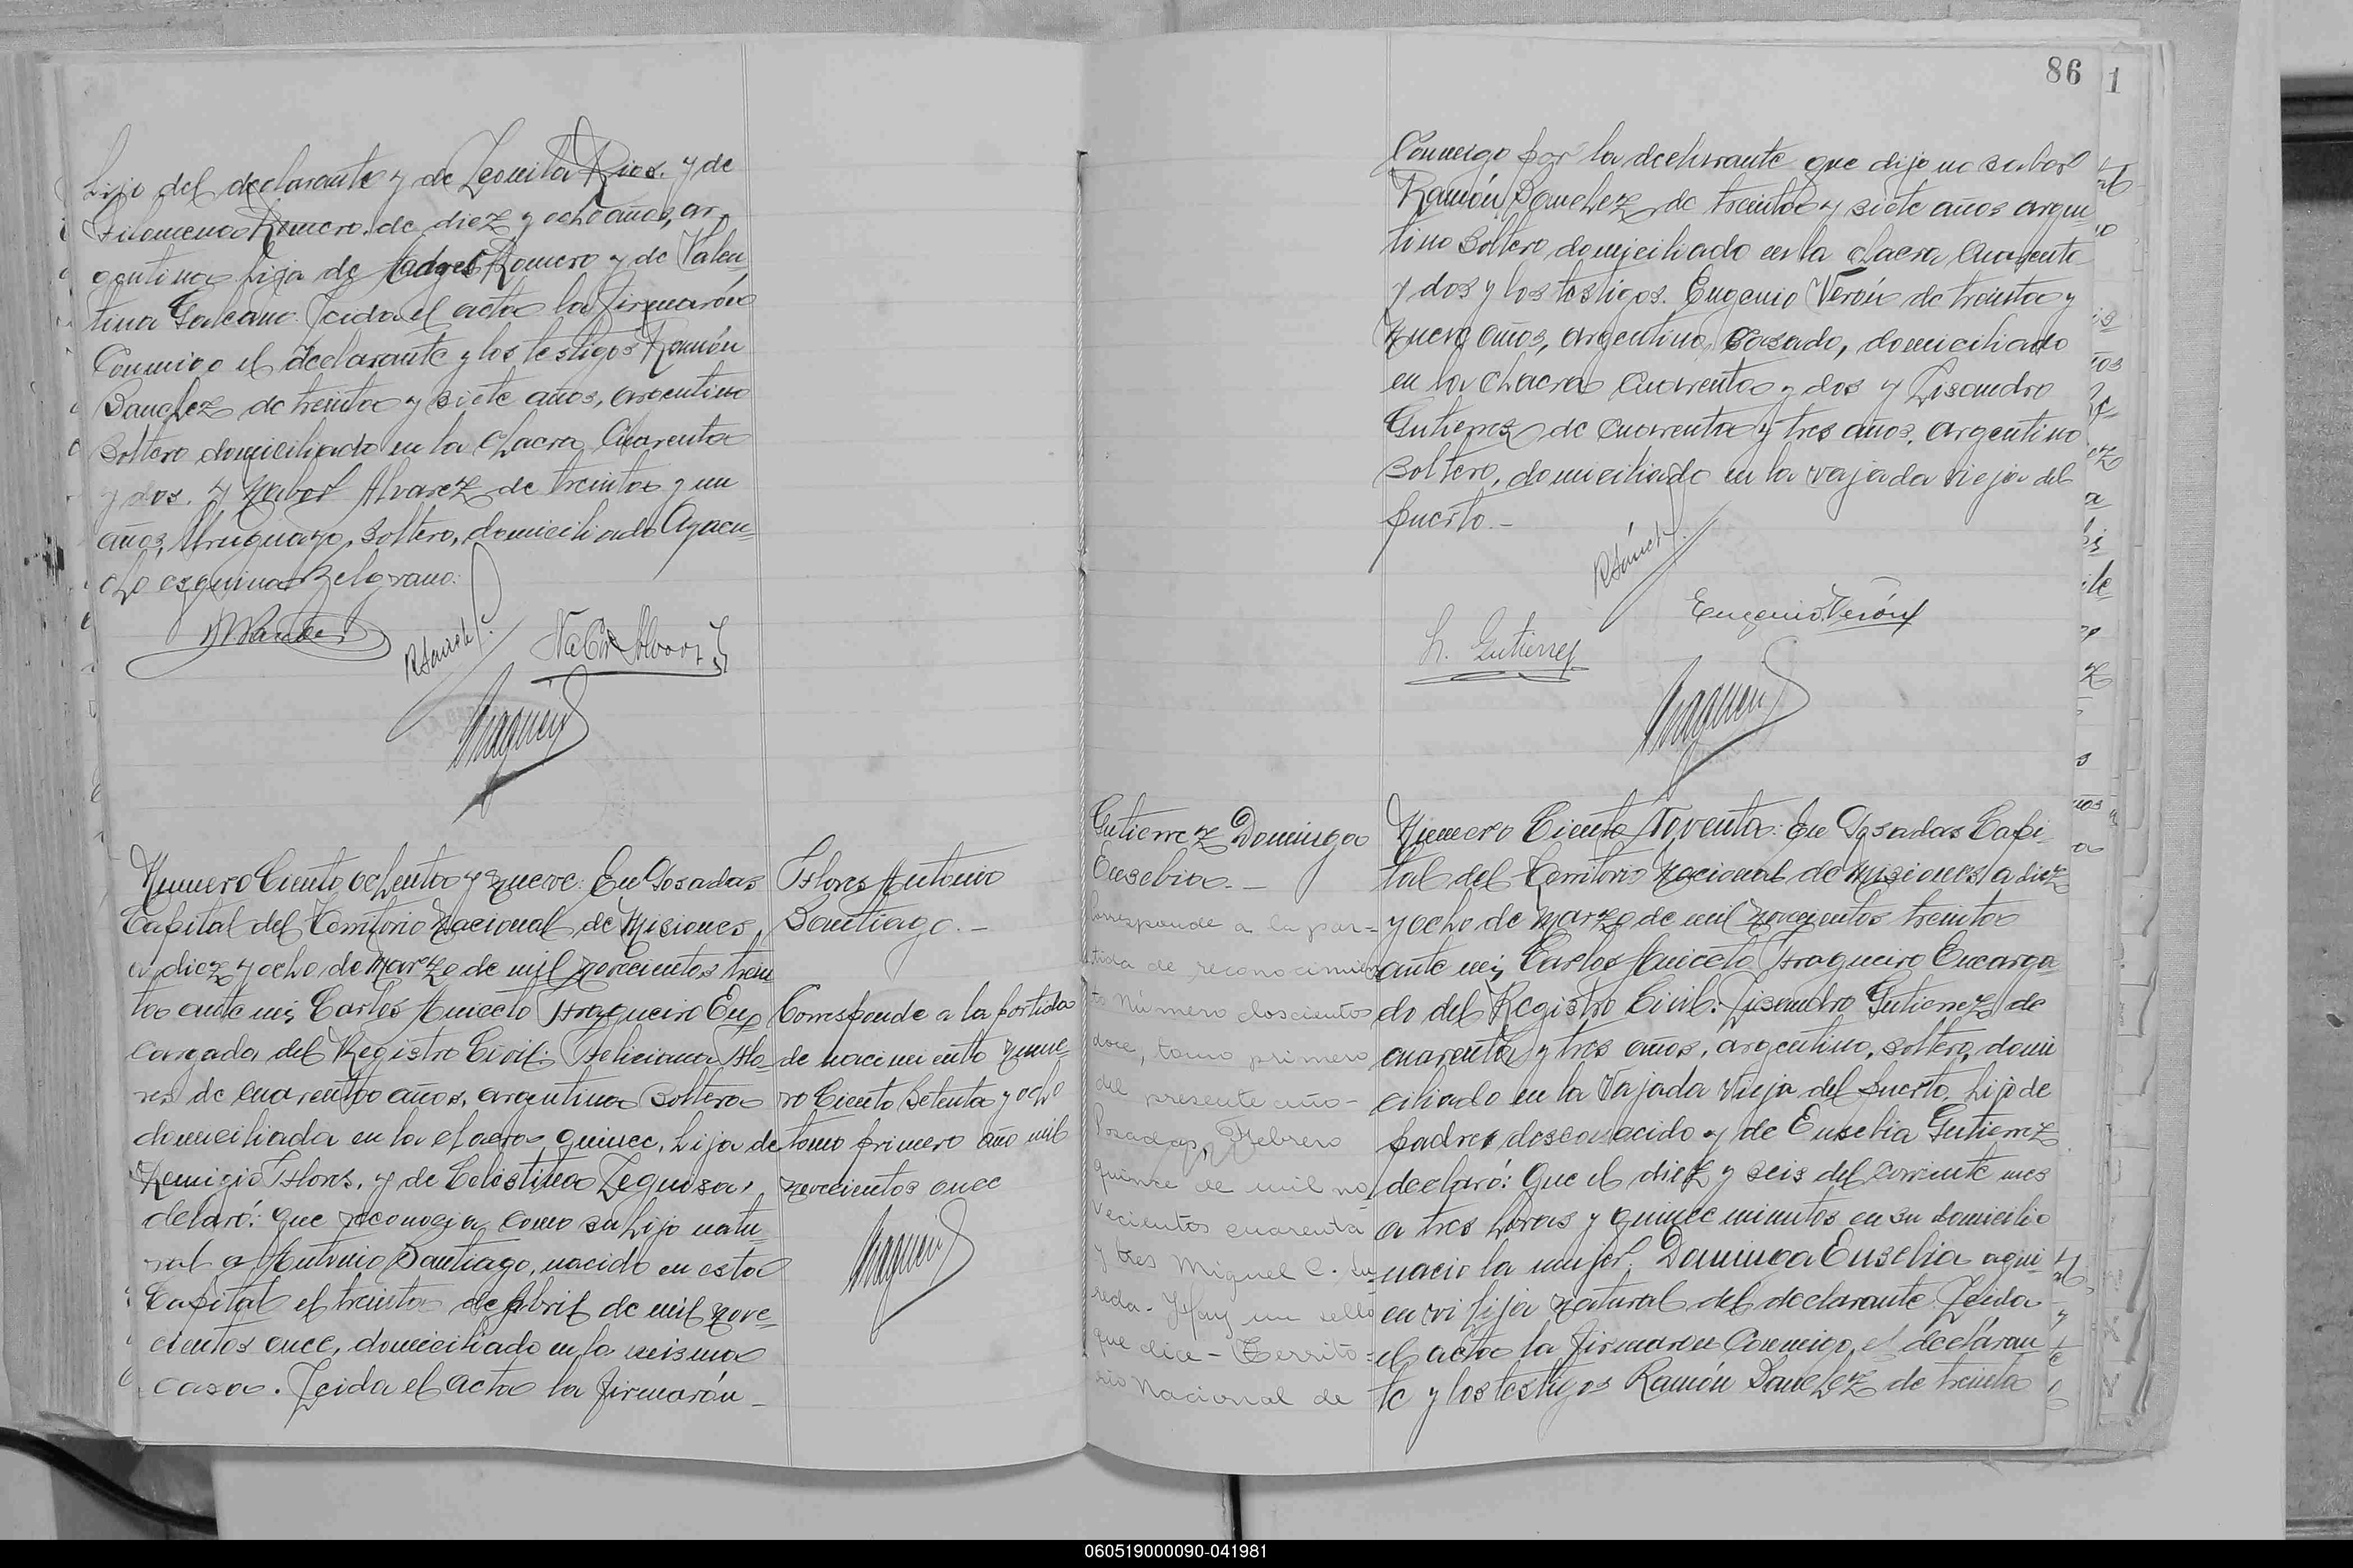 hijo del declarante y de Leonila Rios. y de
Filomena Romero, de diez y ocho años, ar
gentina hija de Romero y de Valen
tina Galeano. Leida el acta la firmarón
Conmigo el declarante y los testigos Ramón
Sanchez de treinta y siete años, argentino
Soltero domiciliado en la chacra Cuarenta
y dos. y Nabor Alvarez de treinta y un
años, Uruguayo, Soltero, domiciliado Ayacu=
cho esquina Belgrano.
R Sánch
Fraqueiro
Numero Ciento ochenta y nueve: En Posadas
Capital del Territorio Nacional de Misiones,
a diez y ocho de Marzo de mil novecientos trein
ta ante mi, Carlos Aniceto Fraqueiro En
cargado del Registro Civil: Feliciana Flo=
res de cuarenta años, argentina Soltera
domiciliada en la chacra quince, hija de
Remigio Flores, y de Celestina
delaró: que reconocia como su hijo natu=
ral a Antonio Santiago, nacido en esta
Capital el treinta de Abril de mil nove=
cientos once, domiciliado en la misma
casa. Leida el acta la firmarón
Flores Antonio
Santiago.-
Corresponde a la partida
de nacimiento nume=
ro Ciento Setenta y ocho
tomo primero año mil
novecientos once
Fraqueiro
86
1
Conmigo por la declarante que dijo no saber
Ramón Sanchez de treinta y siete años argen
tino Soltero domiciliado en la chacra Cuarenta
y dos y los testigos. Eugenio Verón de treinta y
nueve años, argentino, Casado, domiciliado
en la chacra Cuarenta y dos y Lisandro
Gutierrez de cuarenta y tres años, argentino
Soltero, domiciliado en la vajada vieja del
puerto.-
R Sánch
Eugenio Verón
L. Gutierrez
Fraqueiro
Gutierrez Dominga
Eusebia.-
Corresponde a la par=
tida de reconocimien
to Número doscientos
doce, tomo primero
del presente año-
Posadas, Febrero
quince de mil no
vecientos cuarenta
y tres Miguel C. Lu
reda- Hay un sello
que dice- Territo=
rio Nacional de
Numero Ciento Noventa: En Posadas Capi-
tal del Territorio Nacional de Misiones, a diez
y ocho de Marzo de mil novecientos treinta
ante mi, Carlos Aniceto Fraqueiro Encarga
do del Registro Civil: Lisandro Gutierrez de
cuarenta y tres años, argentino, soltero, domi
ciliado en la Vajada Vieja del puerto, hijo de
padre desconocido y de Eusebia Gutierrez
declaró: Que el diez y seis del corriente mes
a tres horas y quince minutos en su domicilio
nacio la mujer, Dominga Eusebia aqui-
en vi hija natural del declarante. Leida
el acta la firmaron Conmigo, el declaran
te y los testigos Ramón Sanchez de treinta